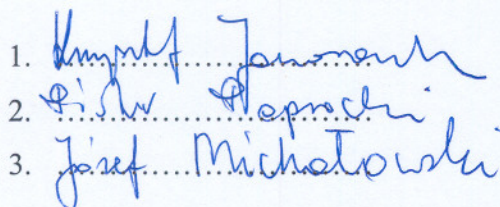 1. Krzysztof
2. Piotr Paprocki
3. Józef Michałowski